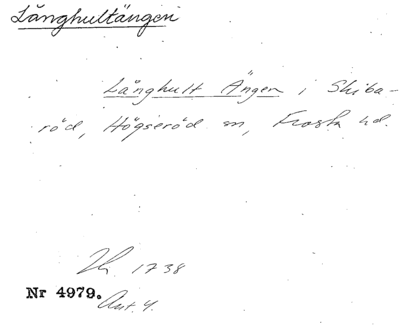 Långhultängen
Långhult Ängen i Skiba-
röd, Högseröd sn, Frosta hd.
Lh. 1738
Nr 4979.
Akt. 4.